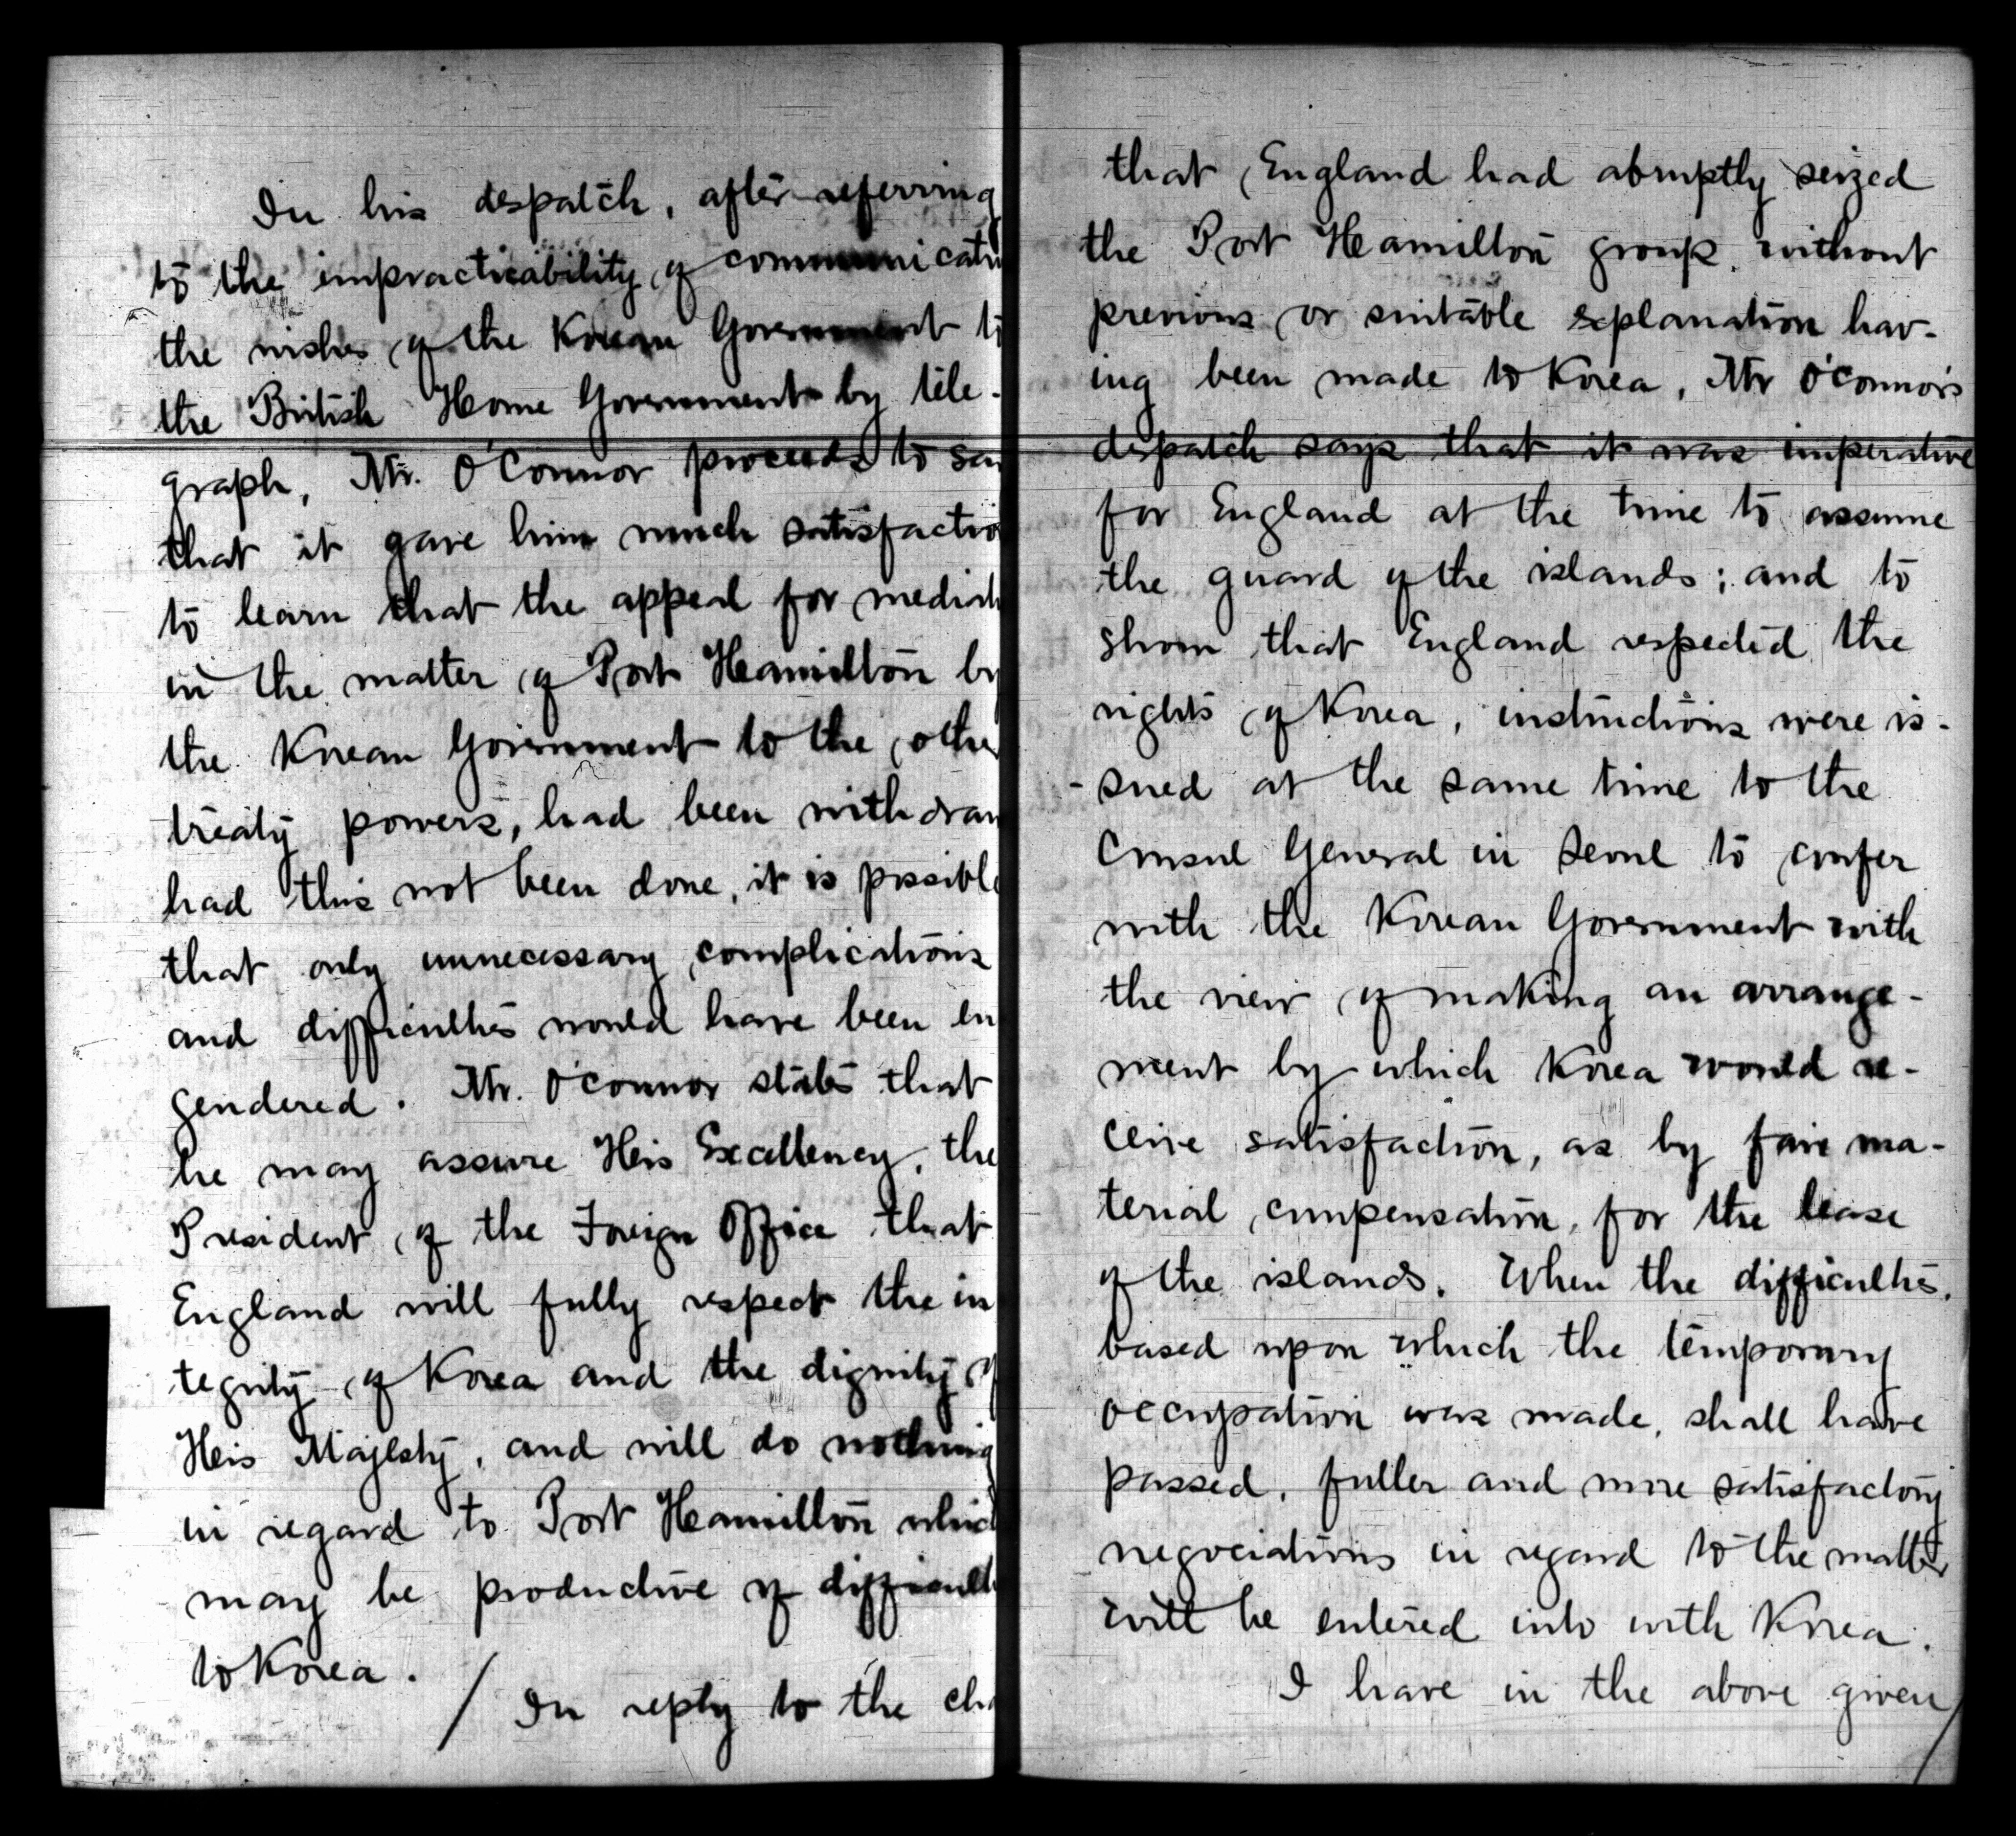 In his despatch, after referring
to the impracticability of communicatin
the wishes of the Korean Government to
the British Home Government by tele-
graph, Mr. O'Connor proceeds to say
that it gave him much satisfactio
to learn that the appeal for mediati
in the matter of Port Hamilton by
the Korean Government to the other
treaty powers, had been withdraw
had this not been done, it is possible
that only unnecessary complications
and difficulties would have been en
gendered. Mr. O'Connor states that
he may assure His Excellency, the
President of the Foreign Office that
England will fully respect the in
tegrity of Korea and the dignity of
His Majesty, and will do nothing
in regard to Port Hamilton which
may be productive of difficult
to Korea.
/ In reply to the cha
that England had abruptly seized
the Port Hamilton group without
previous or suitable explanation hav-
ing been made to Korea, Mr O'Connor's
despatch says that it was imperative
for England at the time to assume
the guard of the islands; and to
show that England respected the
rights of Korea, instructions were is-
-sued at the same time to the
Consul General in Seoul to confer
with the Korean Government with
the view of making an arrange-
ment by which Korea would re-
ceive satisfaction, as by fair ma-
terial compensation, for the lease
of the islands. When the difficulties,
based upon which the temporary
occupation was made, shall have
passed, fuller and more satisfactory
negociations in regard to the matter
will be entered into with Korea.
I have in the above given /